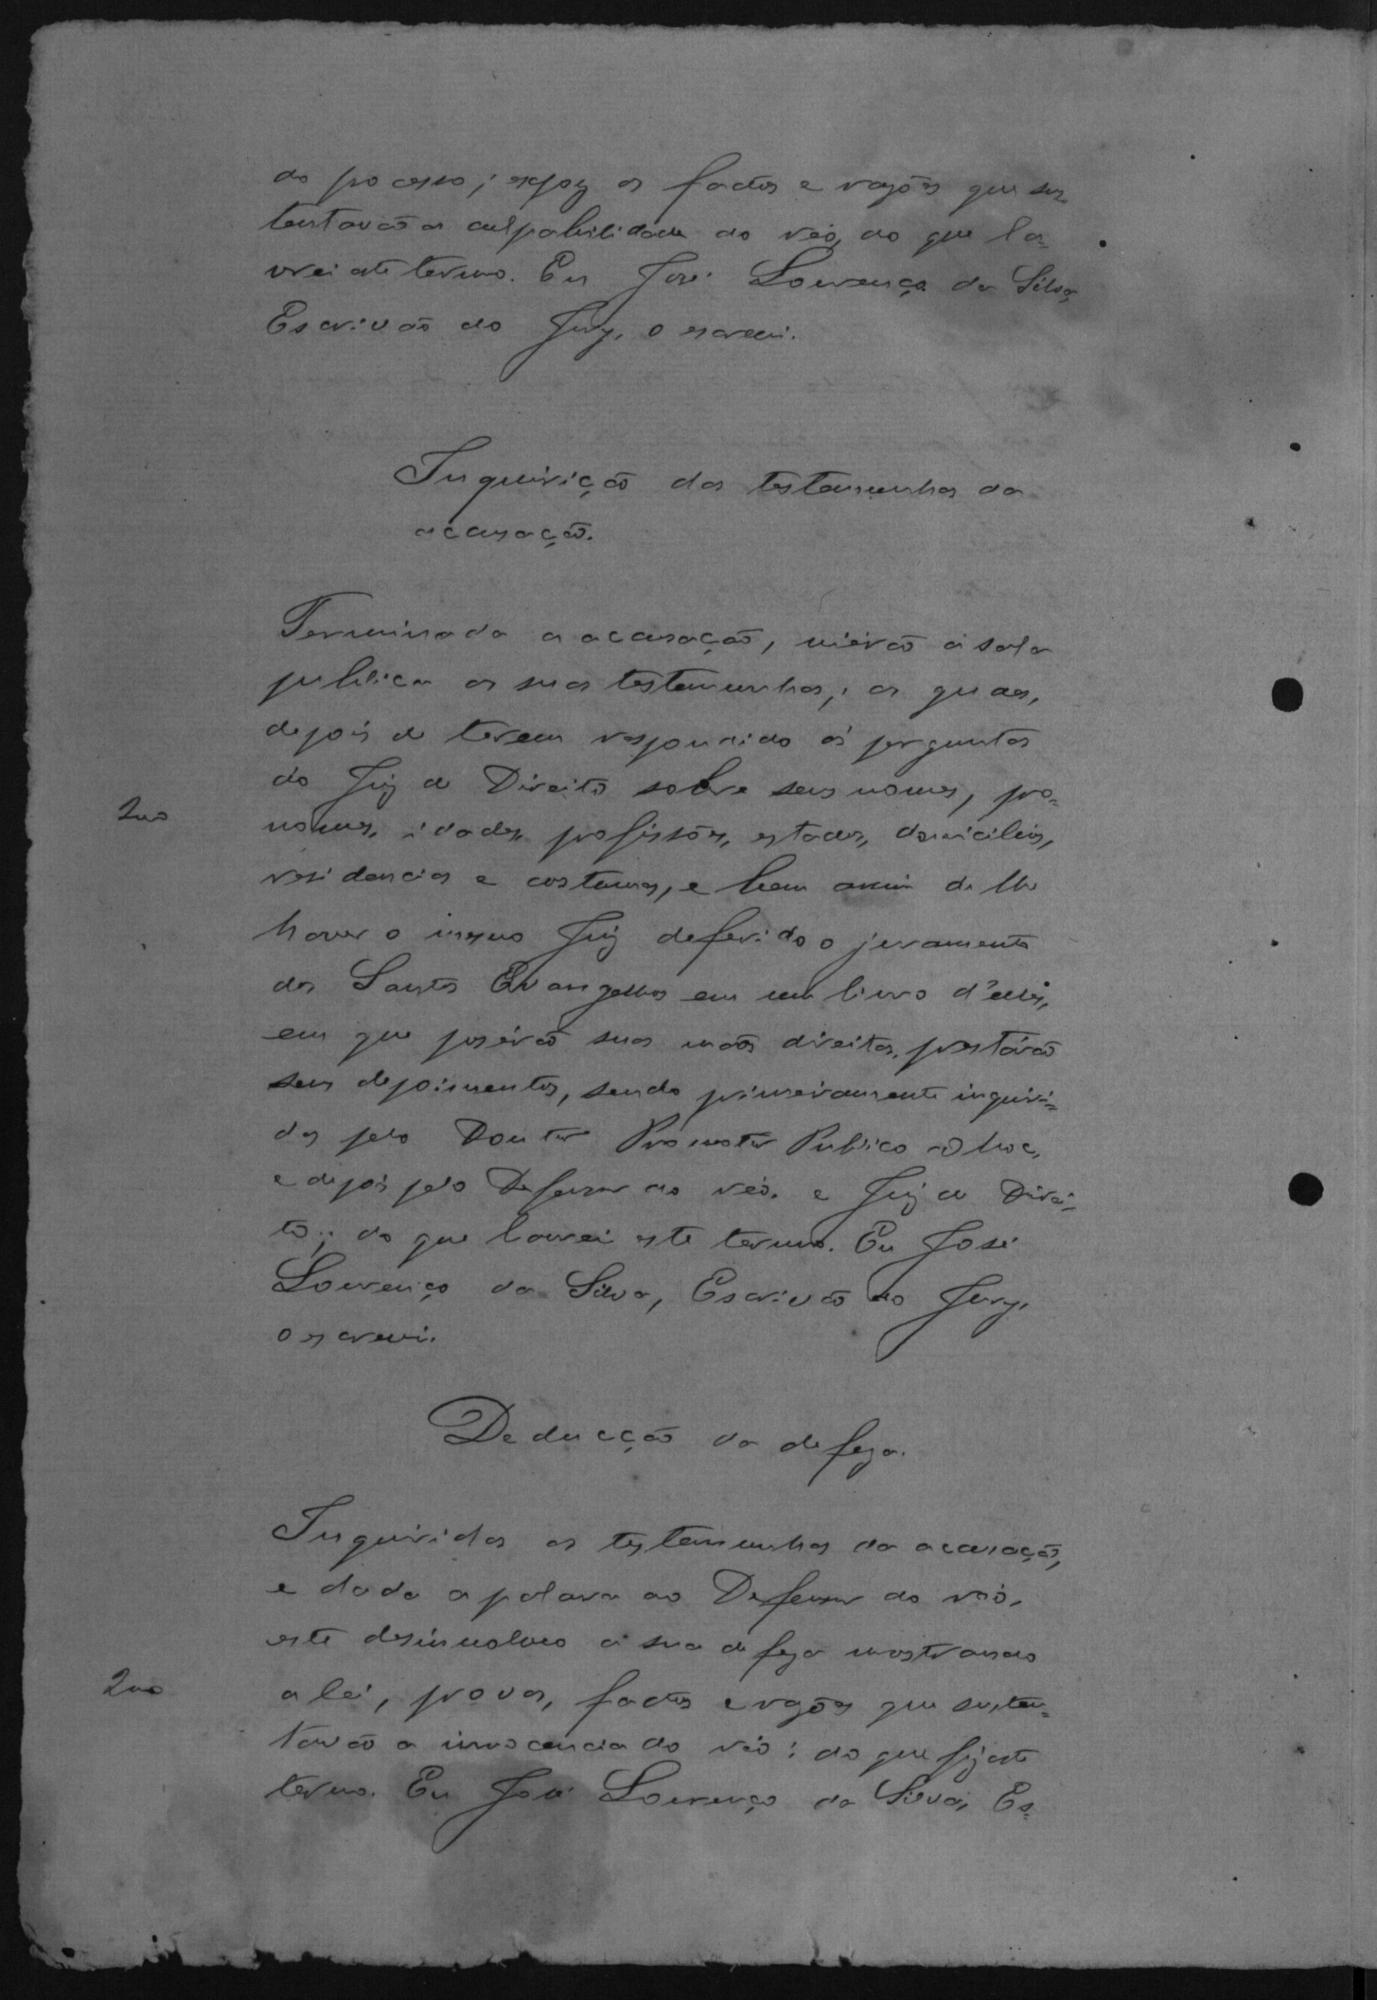 do processo; expoz os factos e razões que sus-
tentavão a culpabilidade do réo, do que la-
vrei este termo. Eu José Lourenço da Silva,
Escrivão do Jury, o escrevi.
Inquirição das testemunhas da
acusação.
Terminada a acusação, viérão á sala
publica as suas testemunhas; as quaes,
depois de terem respondido ás perguntas
do Juiz de Direito sobre seus nomes, pro-
nomes, idades, profissões, estados, domicilios,
residencias e costumes, e bem assim de lhe
haver o mesmo Juiz deferido o juramento
dos Santos Evangelhos em um livro d'elles,
em que poserão suas mãos direitas, prestárão
seus depoimentos, sendo primeiramente inquiri-
das pelo Doutor Promotor Publico ad hoc,
e depois pelo Defensor do réo, e Juiz de Direi-
to; do que lavrei este termo. Eu José
Lourenço da Silva, Escrivão do Jury,
o escrevi.
Deducção da defeza.
Inquiridas as testemunhas da acusação,
e dada a palavra ao Defensor do réo,
este desinvolveo a sua defeza mostrando
a lei, provas, factos e razões que susten-
tavão a innocencia do réo: do que fiz este
termo. Eu José Lourenço da Silva, Es-